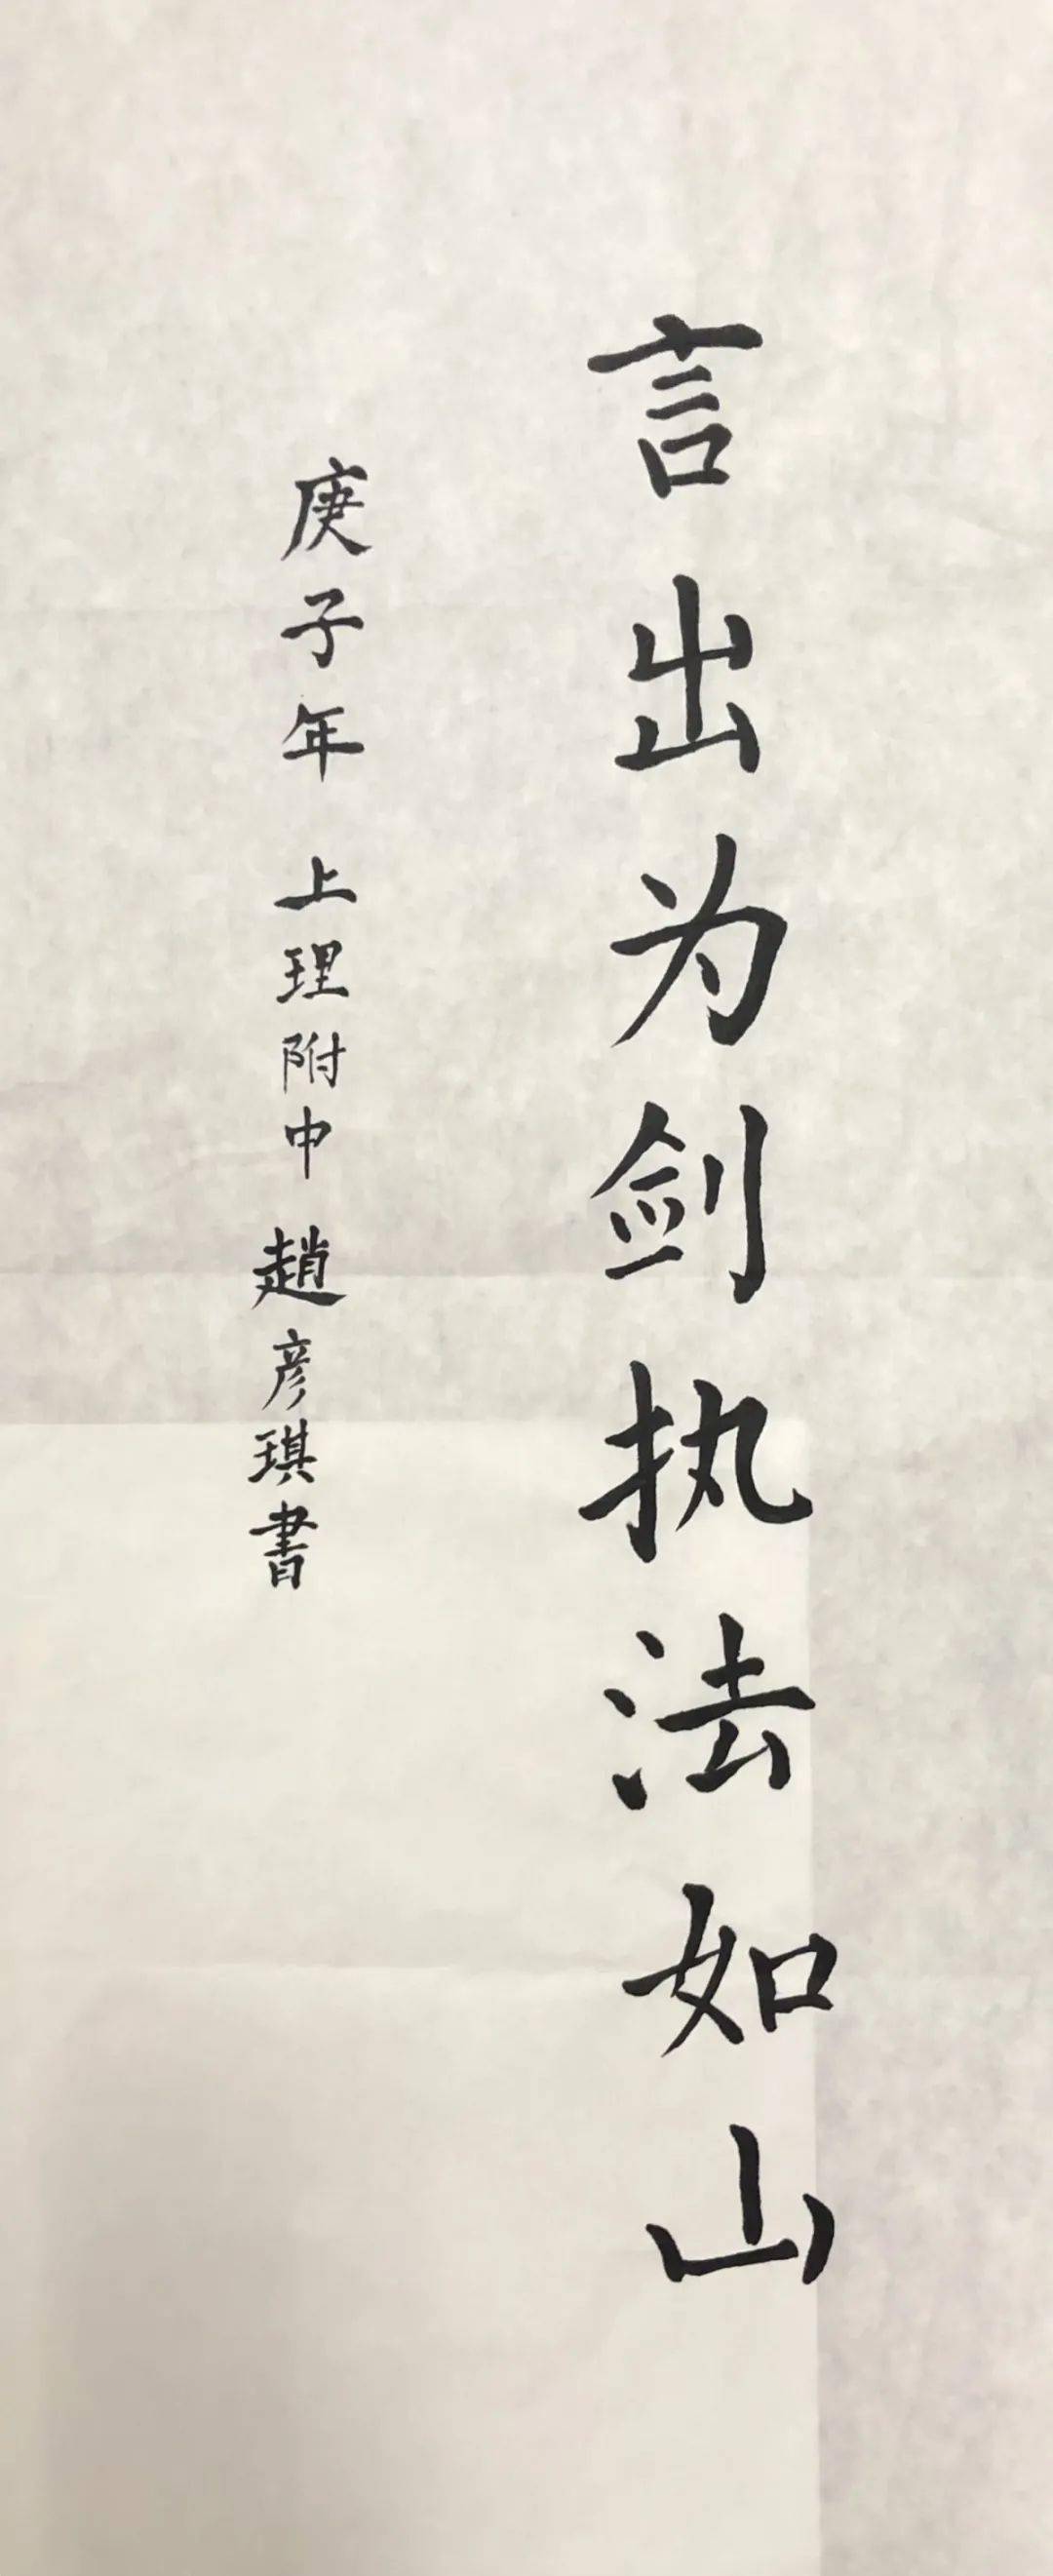 言出为剑执法如山
庚子年 上理附中 趙彦琪書